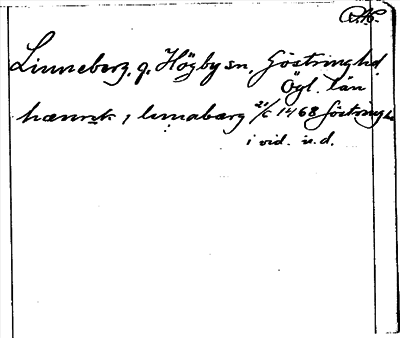 R.H.
Linneberg, g. Högby sn, Göstrings hd.
Ögl. län
hænrek i linnabærg 21/6 1468 Göstrings h
i vid. u.d.